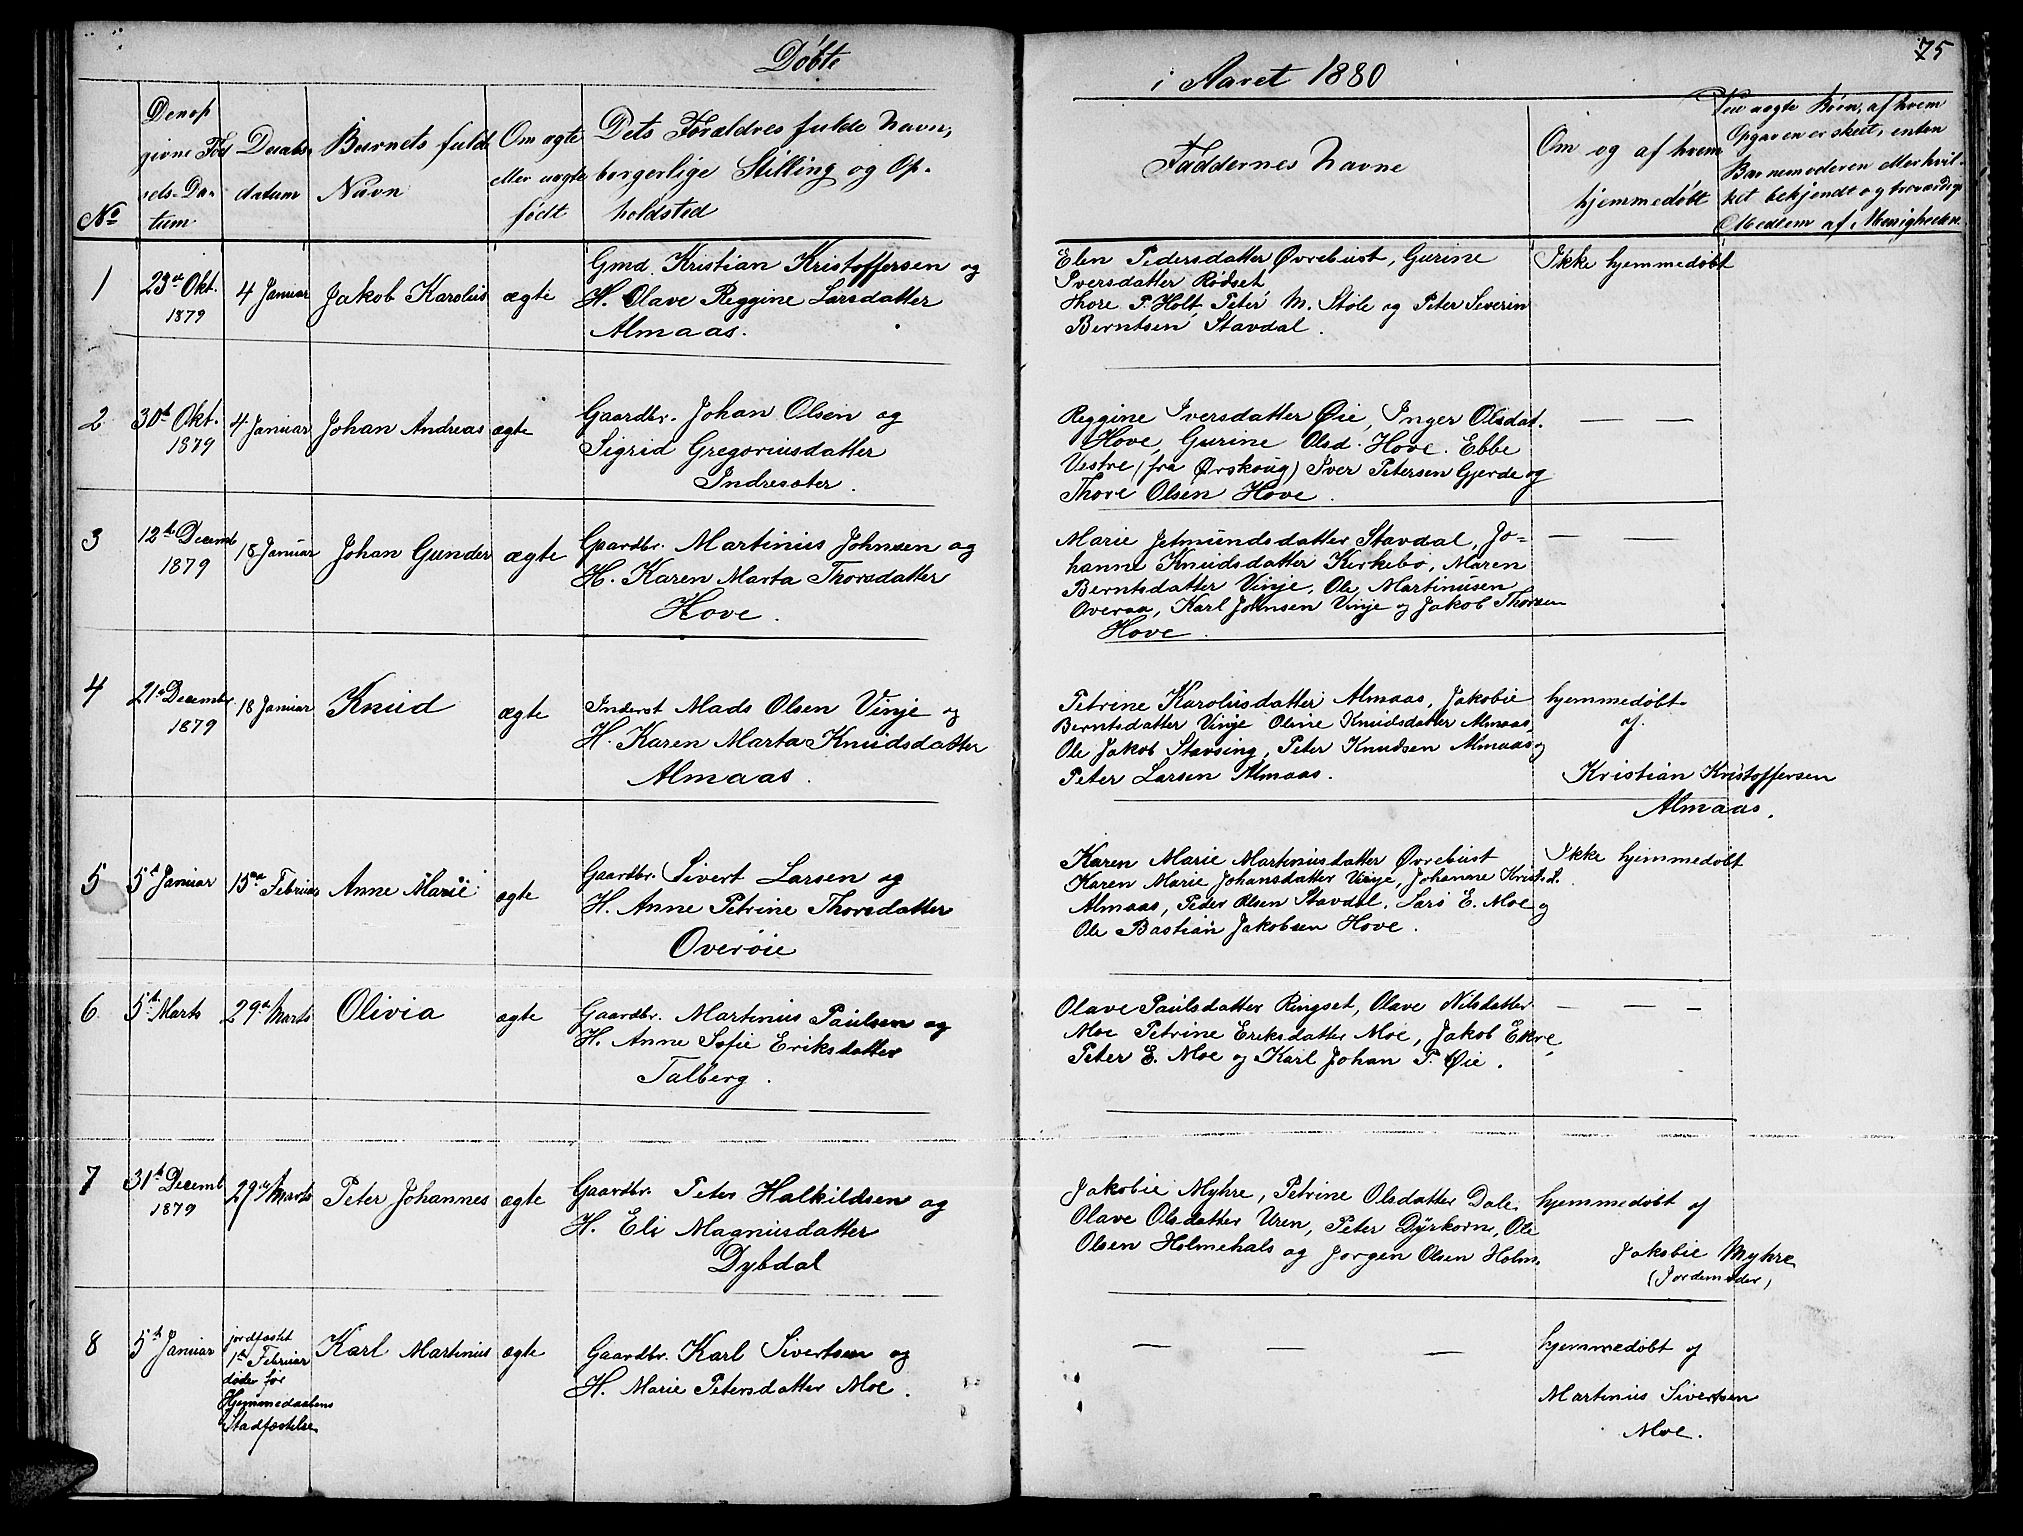 Døbte
i Aaret 1880
75
No
Den op
givne Fød
sels-Da-
tum
Daabs-
datum
Barnets fulde
Navn
Om ægte
eller uægte
født
Dets Forældres fulde Navn,
borgerlige Stilling og Op-
holdsted
Faddernes Navne
Om og af hvem
hjemmedøbt
Ved uægte Børn, af hvem
Opgaven er skeet, enten
Barnemoderen eller hvil-
ket bekjendt og troværdigt
Medlem af Menigheden
1
23de Okt.
1879
4 Januar
Jakob Karolus
ægte
Gmd. Kristian Kristoffersen og
H. Olave Reggine Larsdatter
Almaas.
Elen Pedersdatter Øvrebust, Gurine
Iversdatter Rødset
Thore P. Holt, Peter M. Støle og Peter Severin
Berntsen Stavdal.
Ikke hjemmedøbt
2
30te Okt.
1879
4 Januar
Johan Andreas
ægte
Gaardbr. Johan Olsen og
Sigrid Gregoriusdatter
Indresæter.
Reggine Iversdatter Øie, Inger Olsdat.
Hove, Gurine Olsd. Hove. Ebbe
Vestre (fra Ørskoug) Iver Petersen Gjerde og
Thore Olsen Hove.
— —
3
12te Decemb
1879
18 Januar
Johan Gunder
ægte
Gaardbr. Martinus Johnsen og
H. Karen Marta Thorsdatter
Hove.
Marie Jetmundsdatter Stavdal, Jo=
hanne Knudsdatter Kirkebø, Maren
Berntsdatter Vinje, Ole Martinusen
Overaa, Karl Johnsen Vinje og Jakob Thorsen
Hove.
— —
4
21de December
1879
18 Januar
Knud
ægte
Inderst Mads Olsen Vinje og
H. Karen Marta Knudsdatter
Almaas.
Petrine Karolusdatter Almaas, Jakobie
Berntsdatter Vinje Oline Knudsdatter Almaas,
Ole Jakob Stavseng, Peter Knudsen Almaas og
Peter Larsen Almaas.
hjemmedøbt
af
Kristian Kristoffersen
Almaas.
5
5te Januar
15de Februar
Anne Marie
ægte
Gaardbr. Sivert Larsen og
H. Anne Petrine Thorsdatter
Overøie
Karen Marie Martinusdatter Øvrebust
Karen Marie Johansdatter Vinje, Johanne Krist.d.
Almaas, Peder Olsen Stavdal, Lars E. Moe og
Ole Bastian Jakobsen Hove.
Ikke hjemmedøbt
6
5te Marts
29de Marts
Olivia
ægte
Gaardbr. Martinus Paulsen og
H. Anne Sofie Eriksdatter
Talberg.
Olave Paulsdatter Ringset, Olave Nilsdatter
Moe Petrine Eriksdatter Moe, Jakob Ekre,
Peter E. Moe og Karl Johan P. Øie.
— — —
7
31te Decemb
1879
29de Marts
Peter Johannes
ægte
Gaardbr. Peter Halkildsen og
H. Eli Magnusdatter
Dybdal
Jakobie Myhre, Petrine Olsdatter Dale
Olave Olsdatter Uren, Peter Dyrkorn, Ole
Olsen Holmehals og Jørgen Olsen Holm.
hjemmedøbt af
Jakobie Myhre
(Jordemoder)
8
5te Januar
jordfæstet
1ste Februar
døde før
Hjemmedaabens
Stadfæstelse
Karl Martinus
ægte
Gaardbr. Karl Sivertsen og
H. Marie Petersdatter Moe.
— — —
hjemmedøbt af
Martinus Sivertsen
Moe.